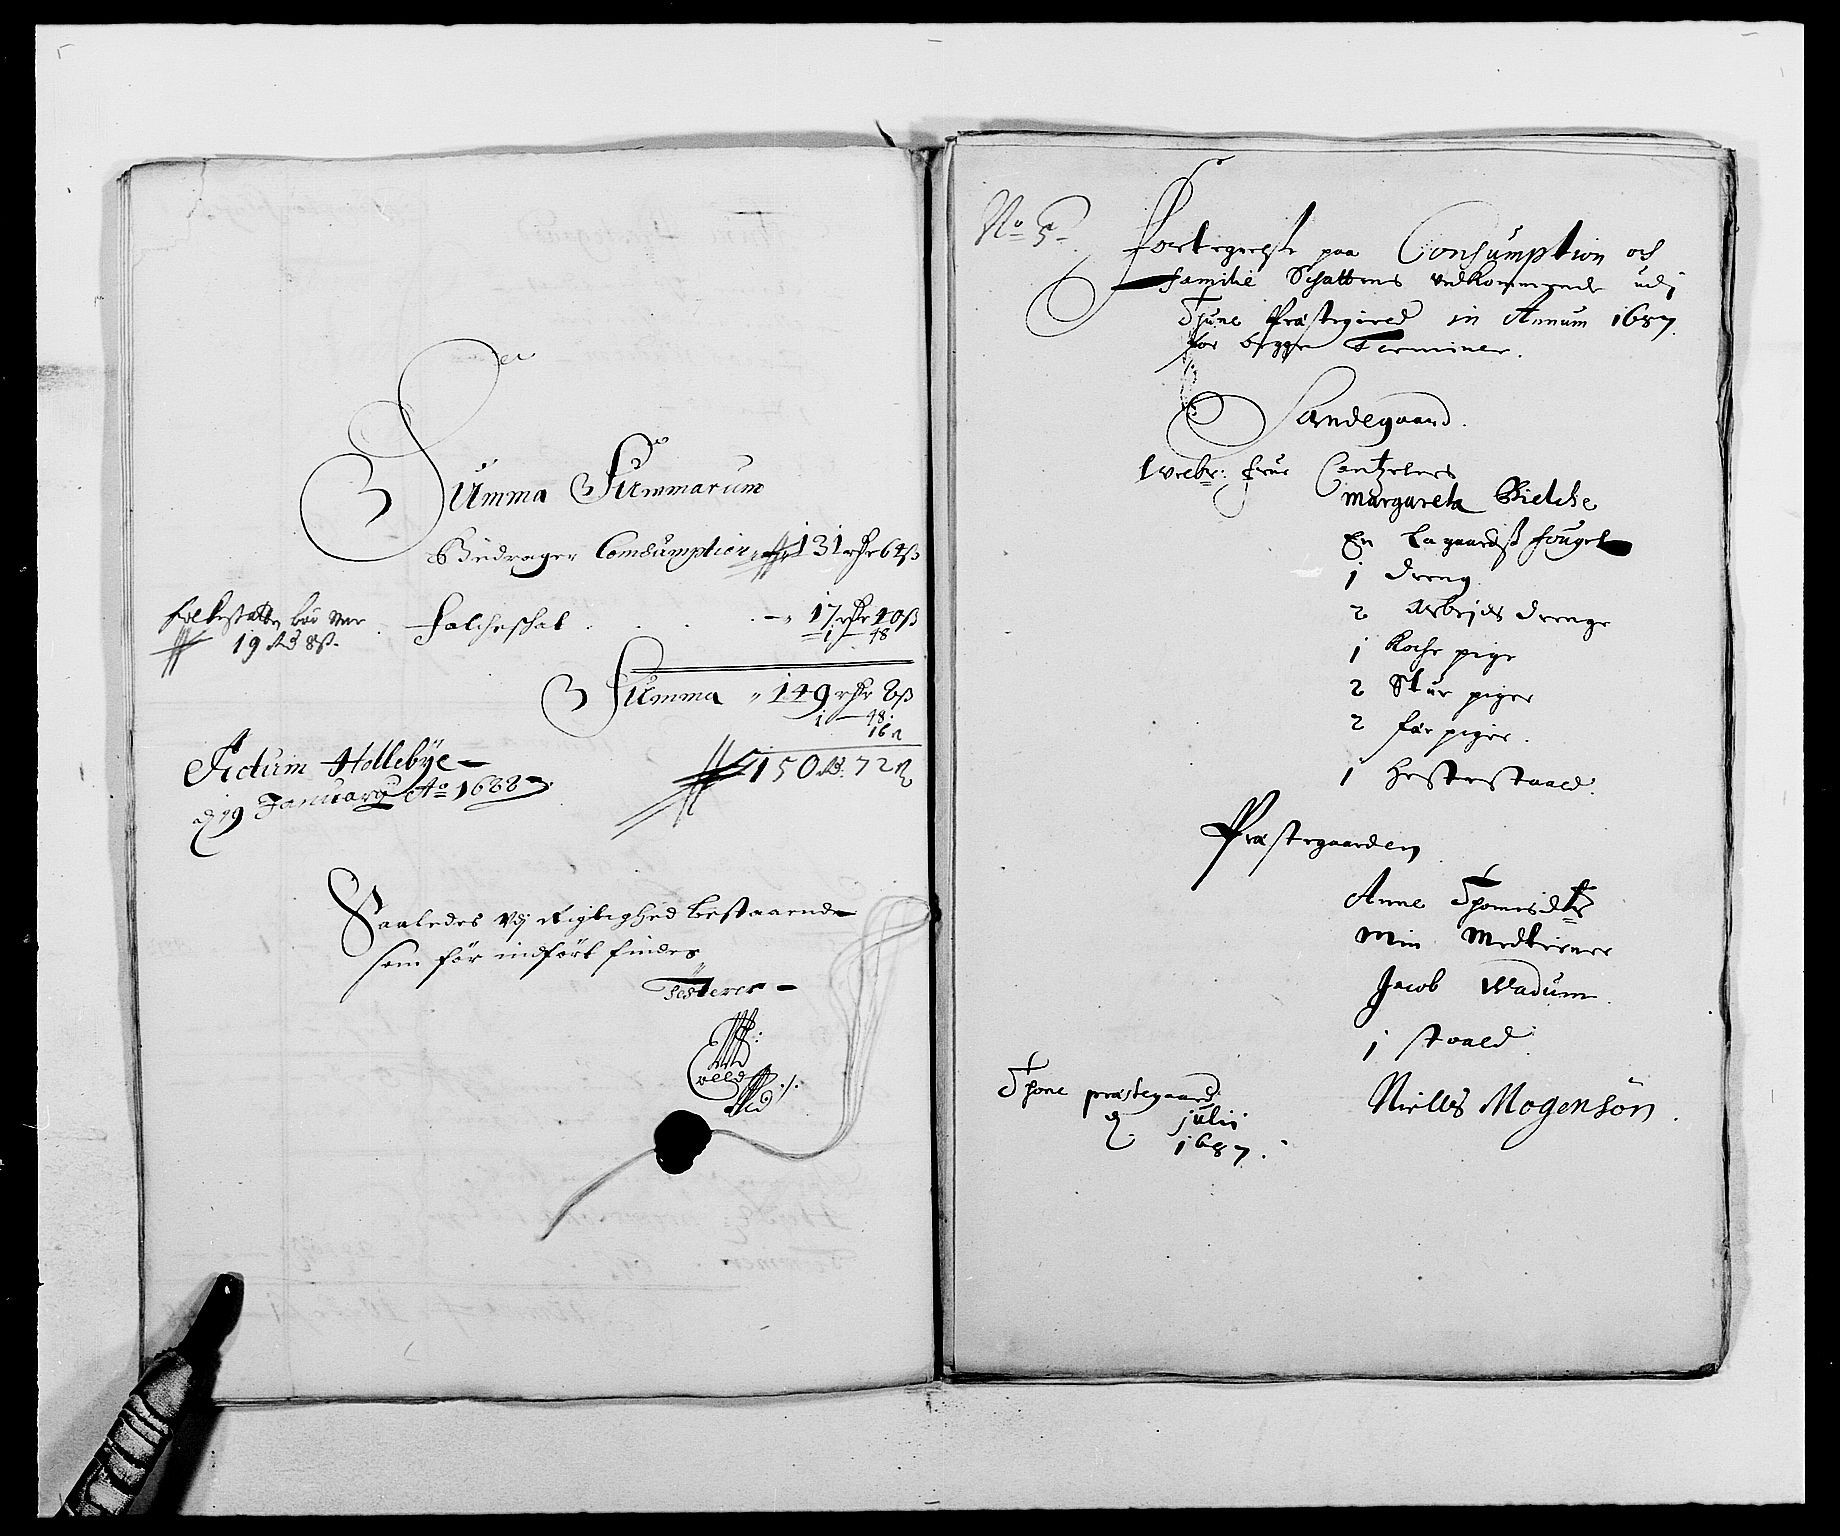 Summa Summarum
Bedrager Comsumptien 131 rdr 64 ß
Folkeskatten bør wer
19 Rd 8 ß.
Falcheschat . . . . 17 rdr 40 ß
1 — 48
Summa 149 rdr 8 ß
1 — 48:
16
150 Rd. 72 ß
Actum Hollebÿe
d 19 January Ao 1688
Saaledes Vdj Rigtighed bestaaende
som før indført findes
Testerer
No 5
Fortegnelse paa Consumption och
Familie Schattens vedkommende udj
Thune Præstegield in Annum 1687
for begge Terminer.
Sandegaard.
Welb: Frue Cantzelers
Margareta Bielche
En Ladgaards fouget
1 dreng
2 Arbejds drenge
1 Koche pige
2 Stue piger
2 Før piger.
1 Hestestaald.
Præstegaarden
Anne Thomisdtr
Min Medtiener
Jacob Wadum
1 staald
Thone præstegaard
d julii
1687.
Niells Mogensøn.